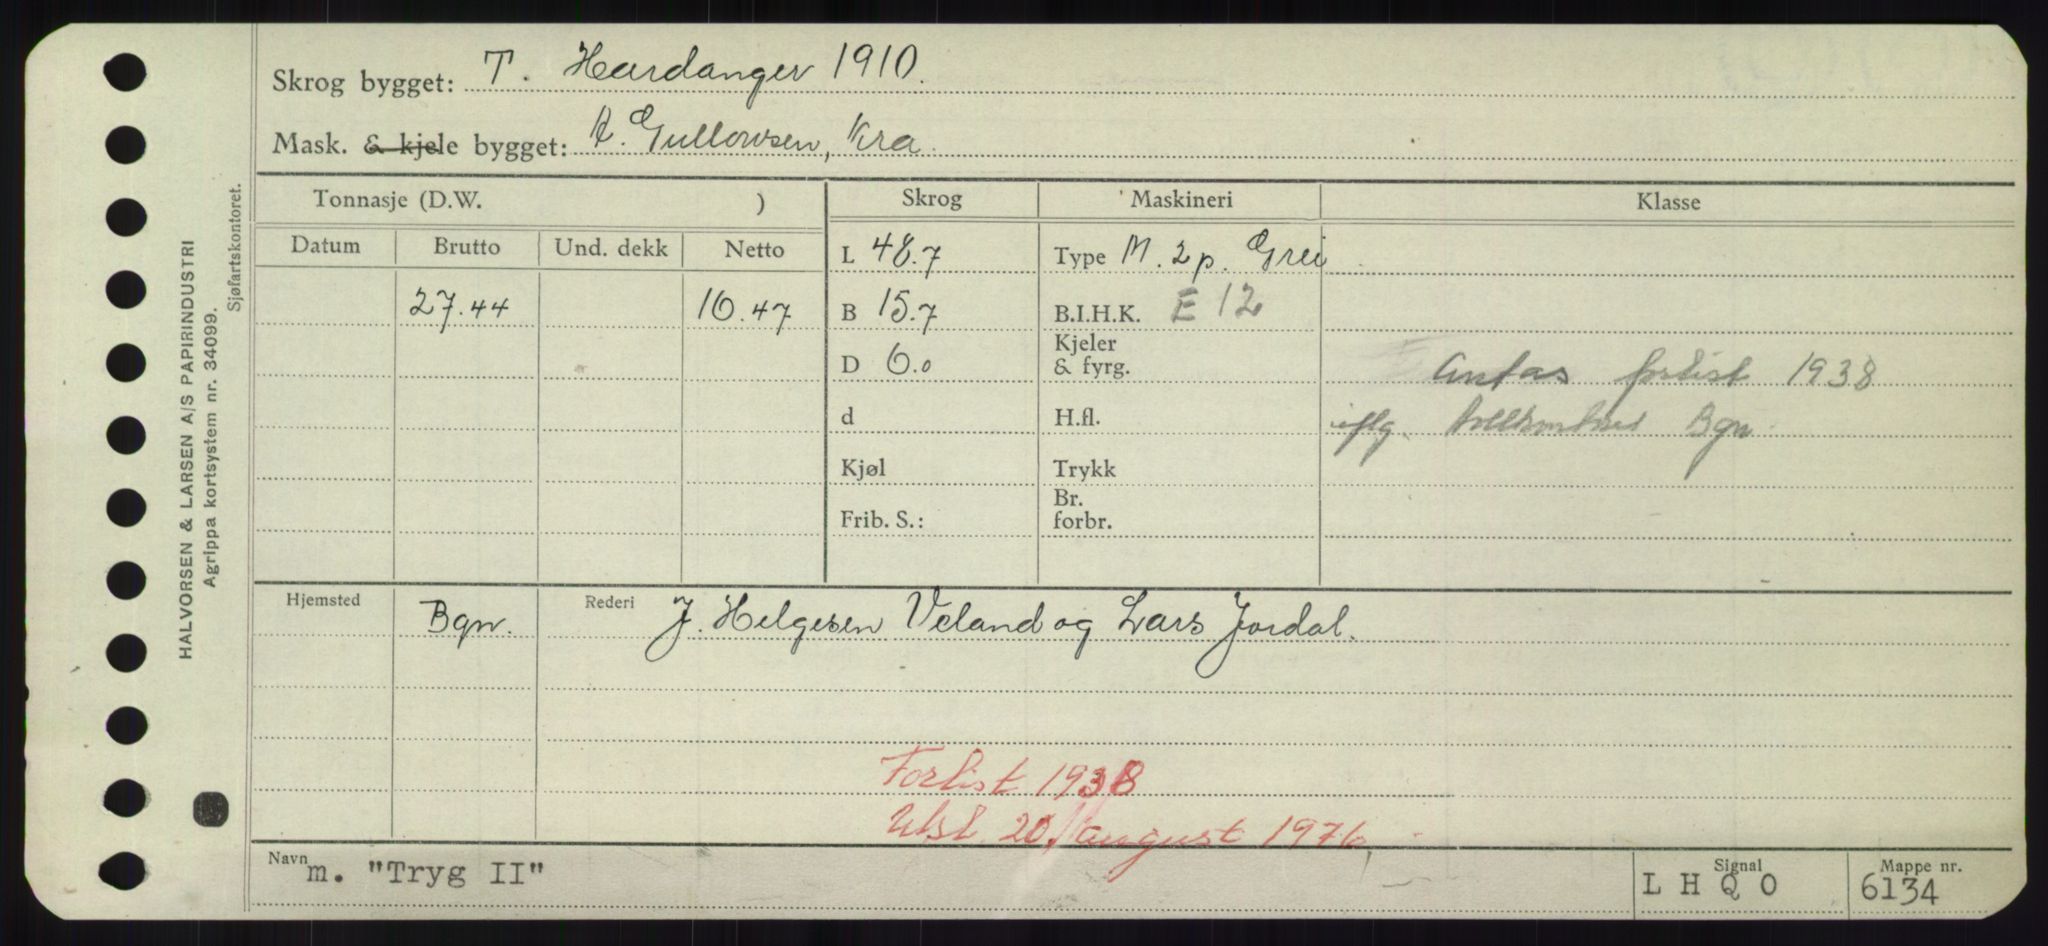 Skrog bygget: T. Hardanger 1910.
Mask. & kjele bygget: A. Gullowsen, Kra.
Tonnasje (D.W. ) Skrog Maskineri Klasse
Datum Brutto Und. dekk Netto L 48.7 Type M. 2 p. Grei
27.44 10.47 B 15.7 B.I.H.K. E 12
D 6.0 Kjeler & fyrg. Antas forlist 1938
d H.fl. iflg. Bgn.
Kjøl Trykk
Frib. S.: Br. forbr.
Hjemsted Bgn. Rederi J. Helgesen Veland og Lars Jordal.
Forlist 1938
Utsl. 20. august 1976
Navn m. "Tryg II" Signal L H Q O Mappe nr. 6134
HALVORSEN & LARSEN A/S PAPIRINDUSTRI
Agrippa kortsystem nr. 34099.
Sjøfartskontoret.